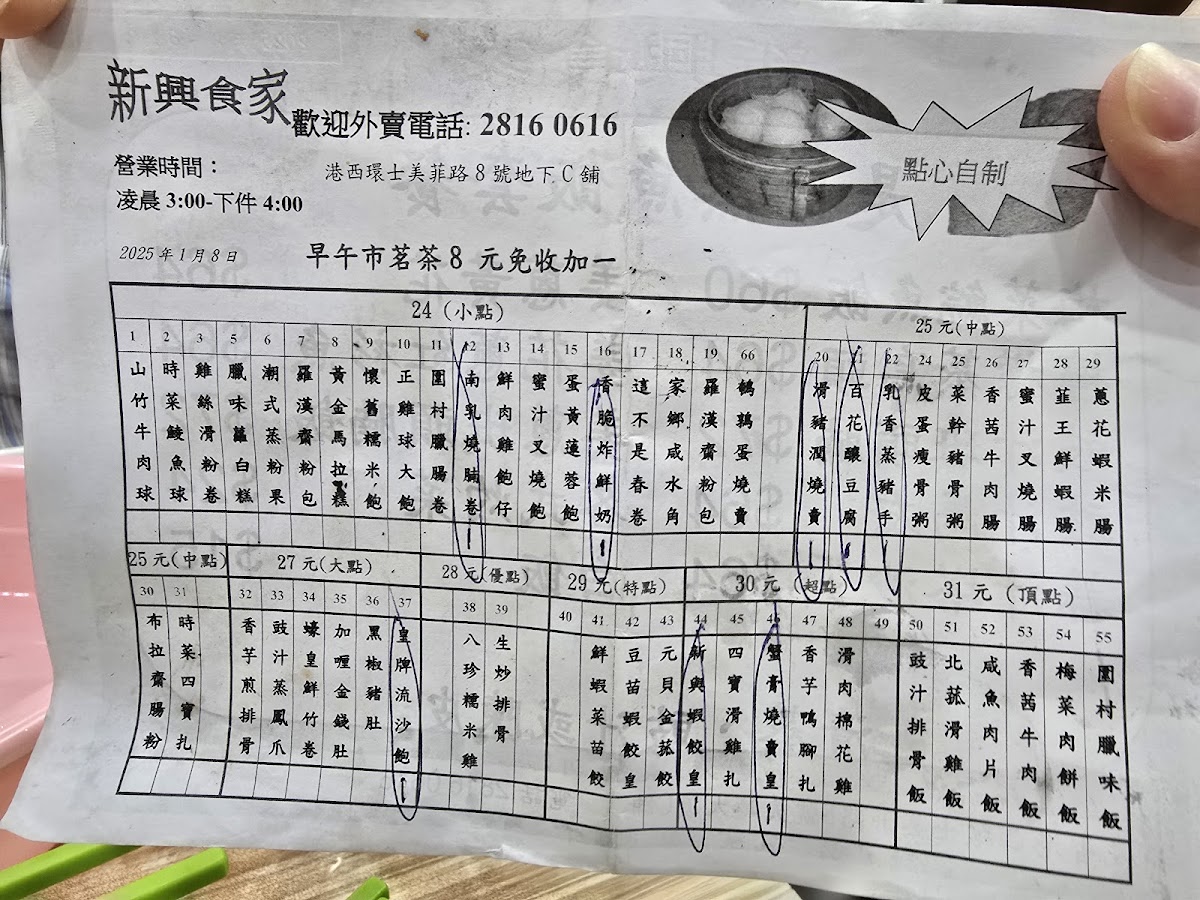 新興食家
歡迎外賣電話: 2816 0616
營業時間：
港西環士美菲路8號地下C舖
凌晨 3:00-下件 4:00
點心自制
2025年1月8日
早午市茗茶8 元免收加一
24 (小點)
1 山竹牛肉球
2 時菜鯪魚球
3 雞絲滑粉卷
5 臘味蘿白糕
6 潮式蒸粉果
7 羅漢齋粉包
8 黃金馬拉糕
9 懷舊糯米飽
10 正雞球大飽
11 圍村臘腸卷
12 南乳燒腩卷
13 鮮肉雞飽仔
14 蜜汁叉燒飽
15 蛋黃蓮蓉飽
16 香脆炸鮮奶
17 這不是春卷
18 家鄉咸水角
19 羅漢齋粉包
66 鵪鶉蛋燒賣
25 元(中點)
20 滑豬潤燒賣
21 百花釀豆腐
22 乳香蒸豬手
24 皮蛋瘦骨粥
25 菜幹豬骨粥
26 香茜牛肉腸
27 蜜汁叉燒腸
28 韮王鮮蝦腸
29 蔥花蝦米腸
25 元(中點)
30 布拉齋腸粉
31 時菜四寶扎
27 元(大點)
32 香芋煎排骨
33 豉汁蒸鳳爪
34 蠔皇鮮竹卷
35 加喱金錢肚
36 黑椒豬肚
37 皇牌流沙飽
28 元(優點)
38 八珍糯米雞
39 生炒排骨
29 元(特點)
40
41 鮮蝦菜苗餃
42 豆苗蝦餃皇
43 元貝金菇餃
30 元 (超點)
44 新興蝦餃皇
45 四寶滑雞扎
46 蟹膏燒賣皇
47 香芋鴨腳扎
48 滑肉棉花雞
49
31 元 (頂點)
50 豉汁排骨飯
51 北菰滑雞飯
52 咸魚肉片飯
53 香茜牛肉飯
54 梅菜肉餅飯
55 圍村臘味飯